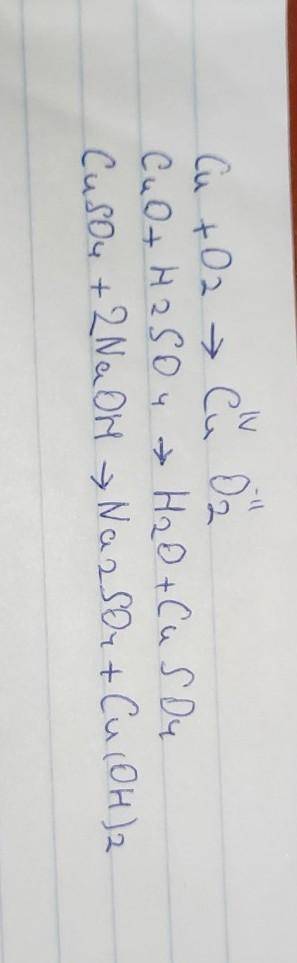 Cu + O2 → Cu^IV O2^-II
CuO + H2SO4 → H2O + CuSO4
CuSO4 + 2NaOH → Na2SO4 + Cu(OH)2